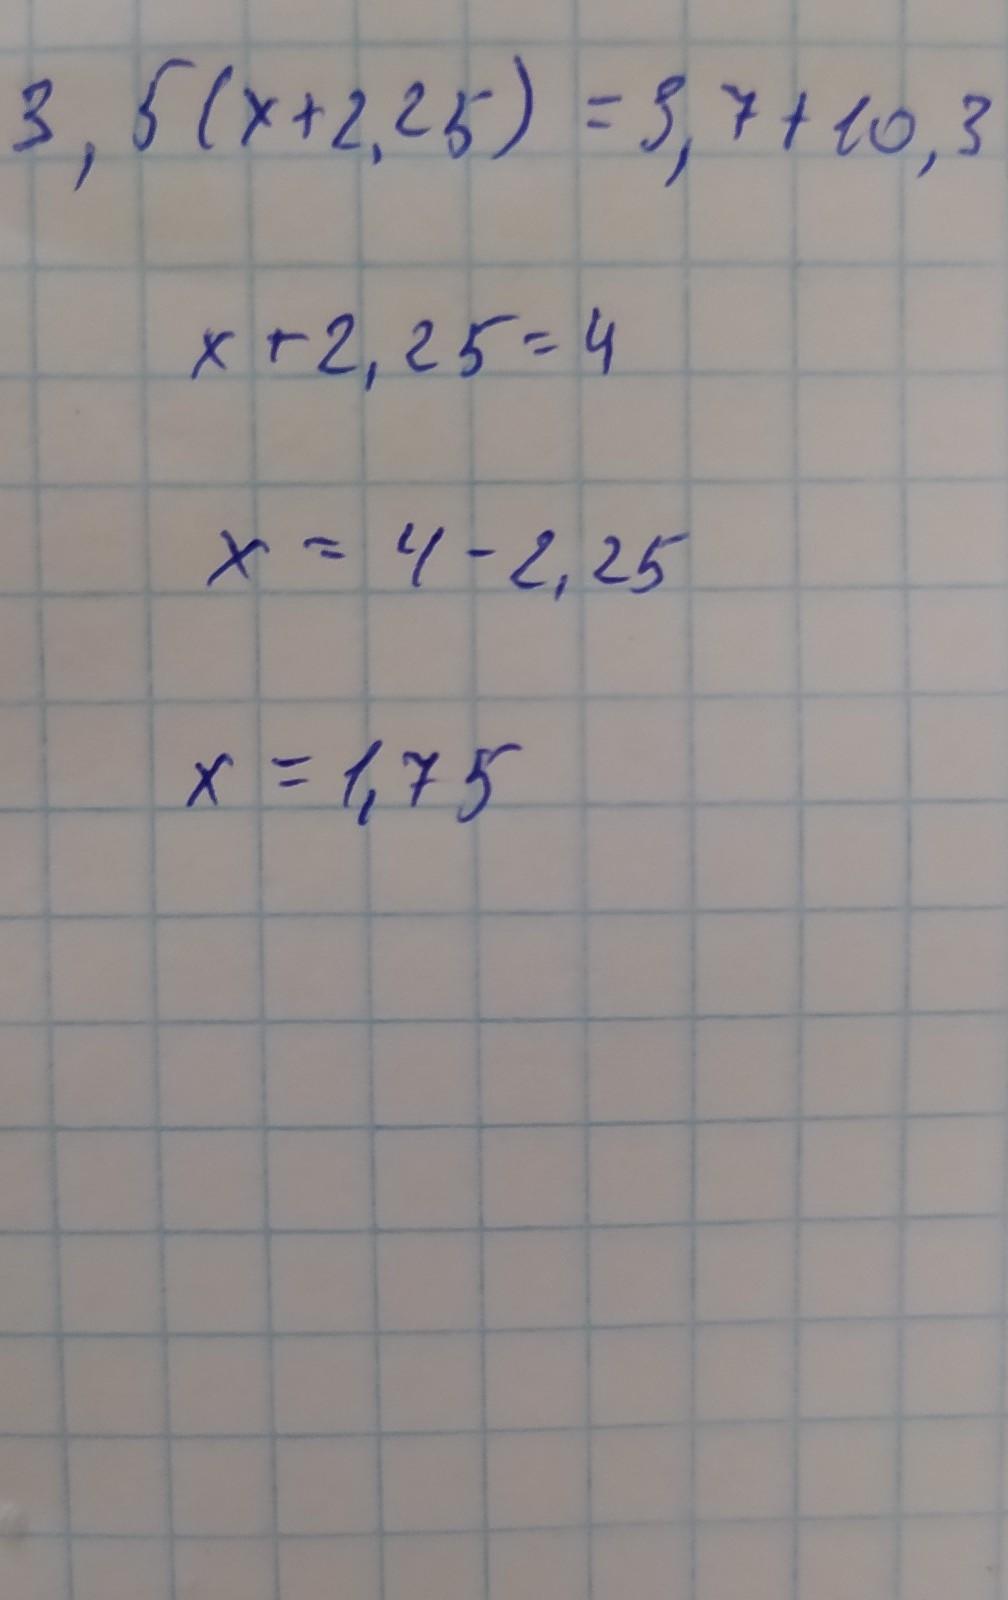 3,5(x+2,25)=3,7+10,3
x+2,25=4
x=4-2,25
x=1,75